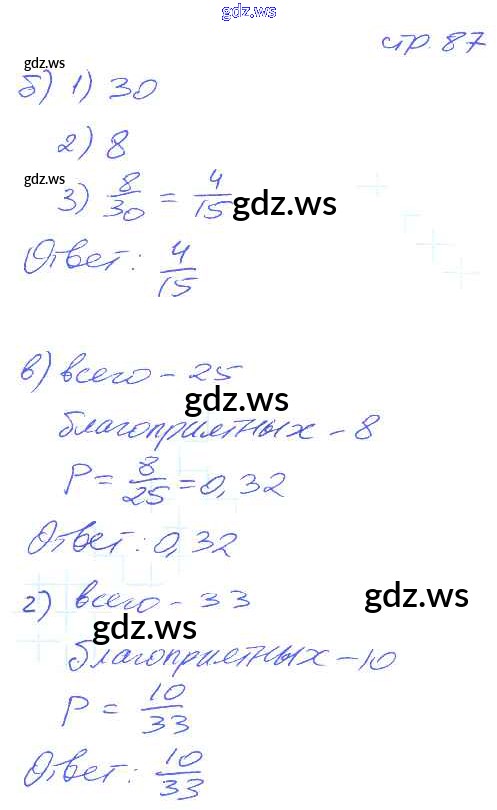 gdz.ws
стр. 87
gdz.ws
б) 1) 30
2) 8
gdz.ws
3) 8/30 = 4/15
gdz.ws
Ответ: 4/15
в) всего - 25
gdz.ws
благоприятных - 8
P = 8/25 = 0,32
Ответ: 0,32
г) всего - 33
gdz.ws
gdz.ws
благоприятных - 10
P = 10/33
Ответ: 10/33